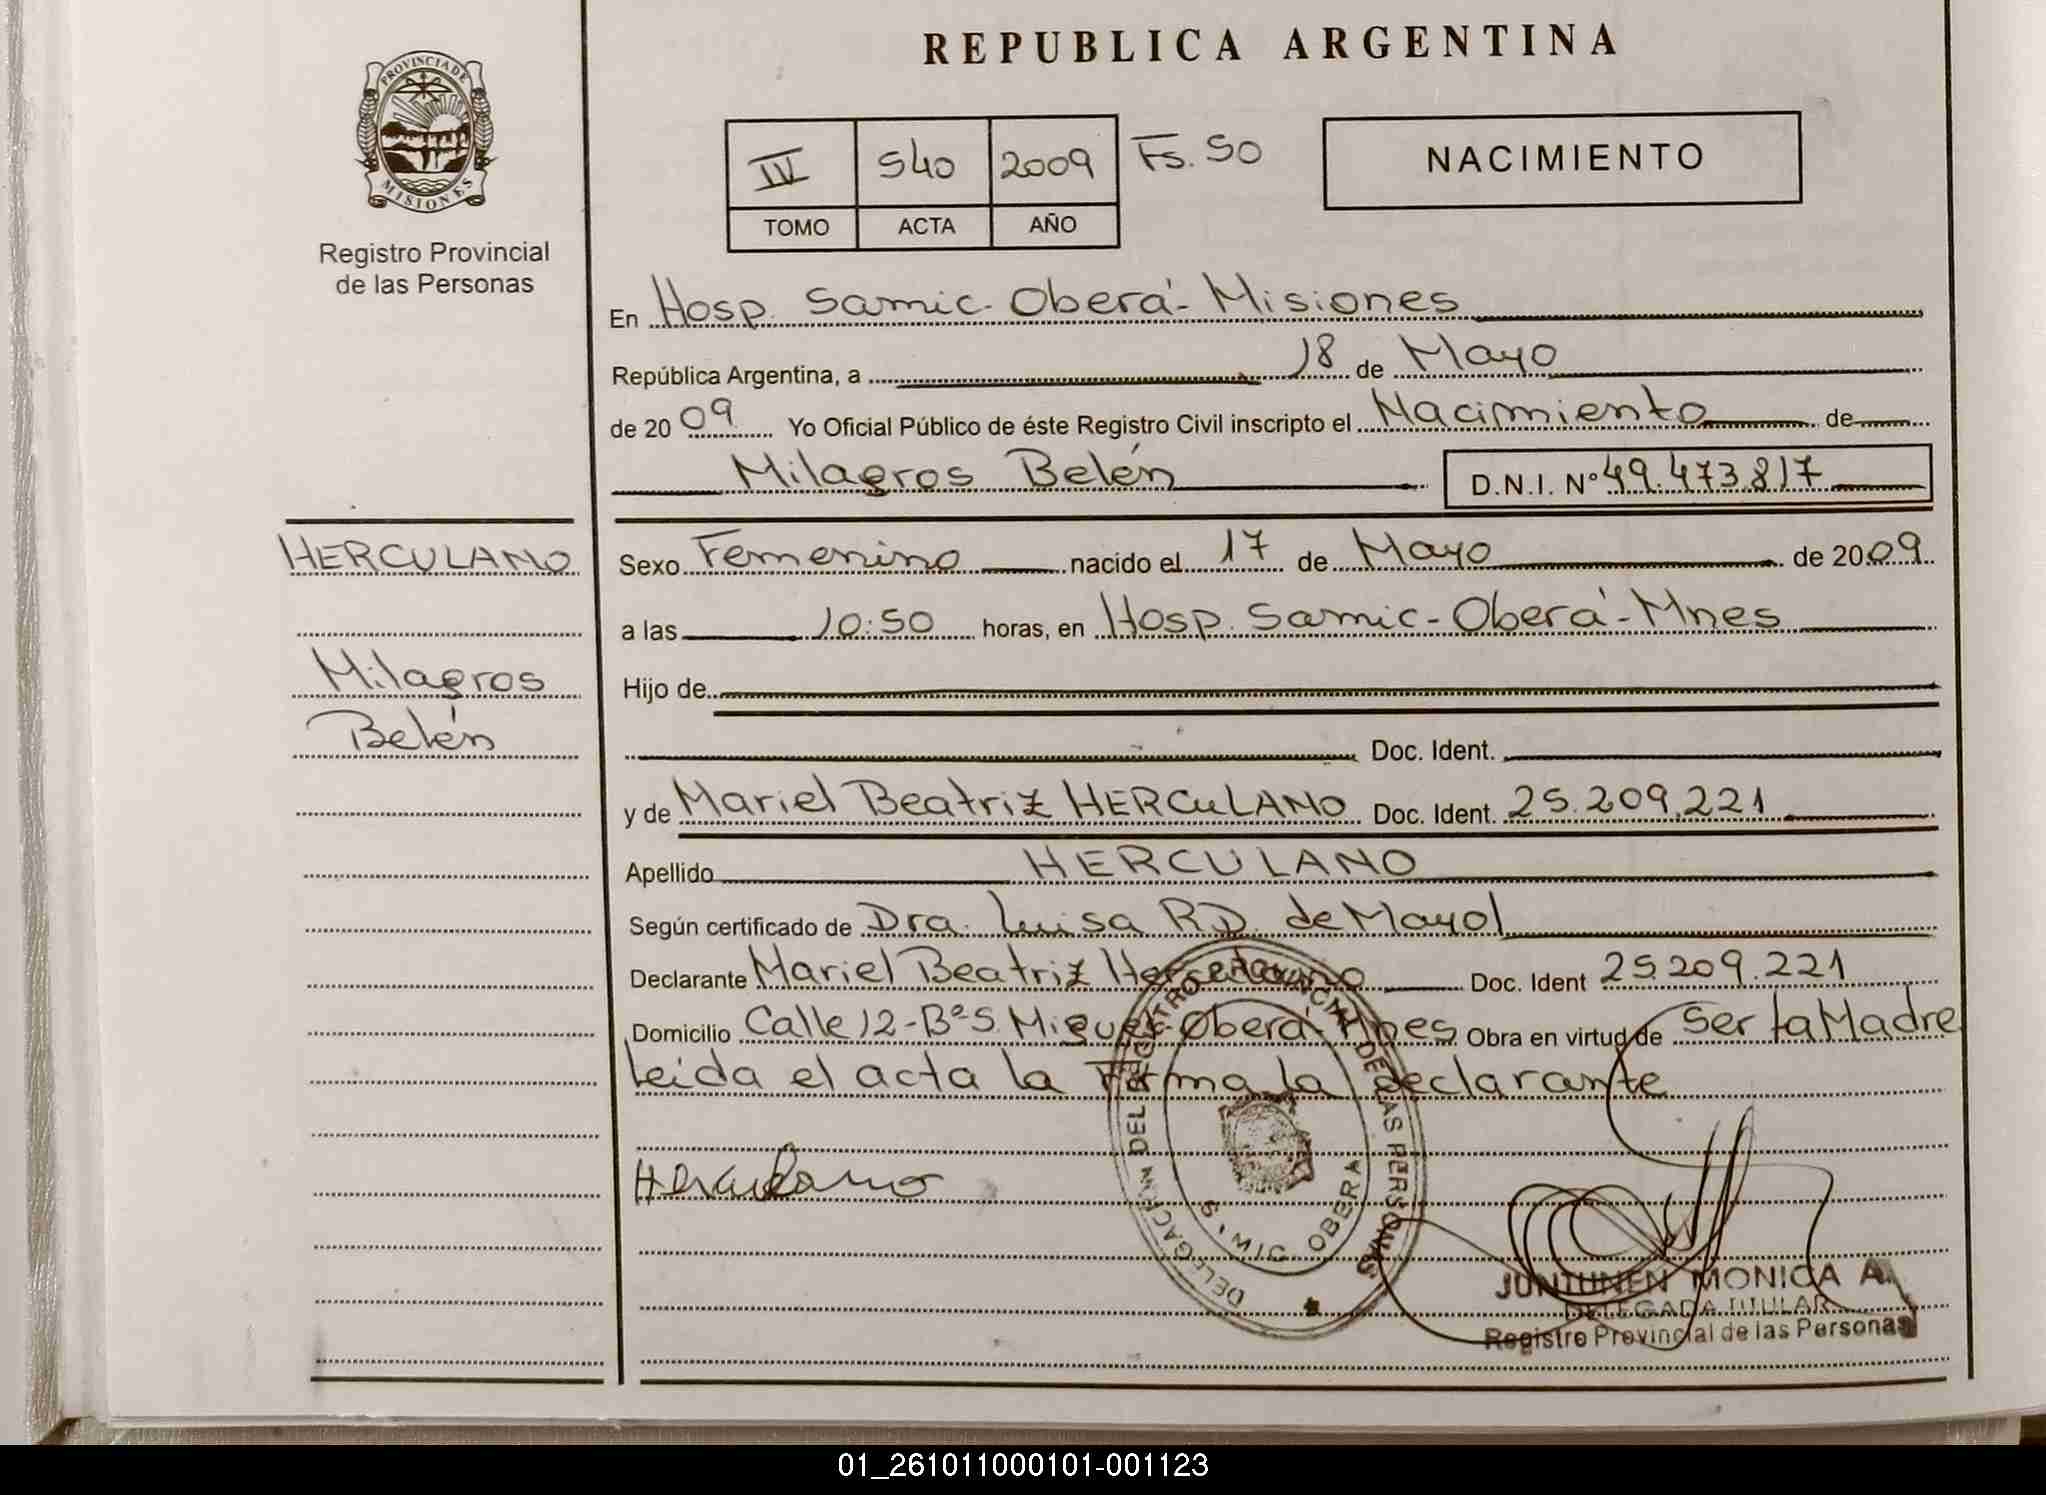 REPUBLICA ARGENTINA
PROVINCIA DE
MISIONES
Registro Provincial
de las Personas
IV 540 2009 Fs. 50
TOMO ACTA AÑO
NACIMIENTO
En Hosp. Samic - Oberá - Misiones
República Argentina, a 18 de Mayo
de 2009 Yo Oficial Público de éste Registro Civil inscripto el Nacimiento de
Milagros Belén D.N.I. Nº 49.473.817
HERCULANO
Milagros
Belén
Sexo Femenino nacido el 17 de Mayo de 2009
a las 10:50 horas, en Hosp. Samic - Oberá - Mnes
Hijo de
Doc. Ident.
y de Mariel Beatriz HERCULANO Doc. Ident. 25.209.221
Apellido HERCULANO
Según certificado de Dra. Luisa R.D. de Mayol
Declarante Mariel Beatriz Herculano Doc. Ident 25.209.221
Domicilio Calle 12 - Bº S. Miguel - Oberá - Mnes Obra en virtud de Ser la Madre
Leida el acta la firma la declarante
Herculano
DELEGACION DEL REGISTRO PROVINCIAL DE LAS PERSONAS
OBERA
JUNTUNEN MONICA A.
DELEGADA TITULAR
Registro Provincial de las Personas
01_261011000101-001123